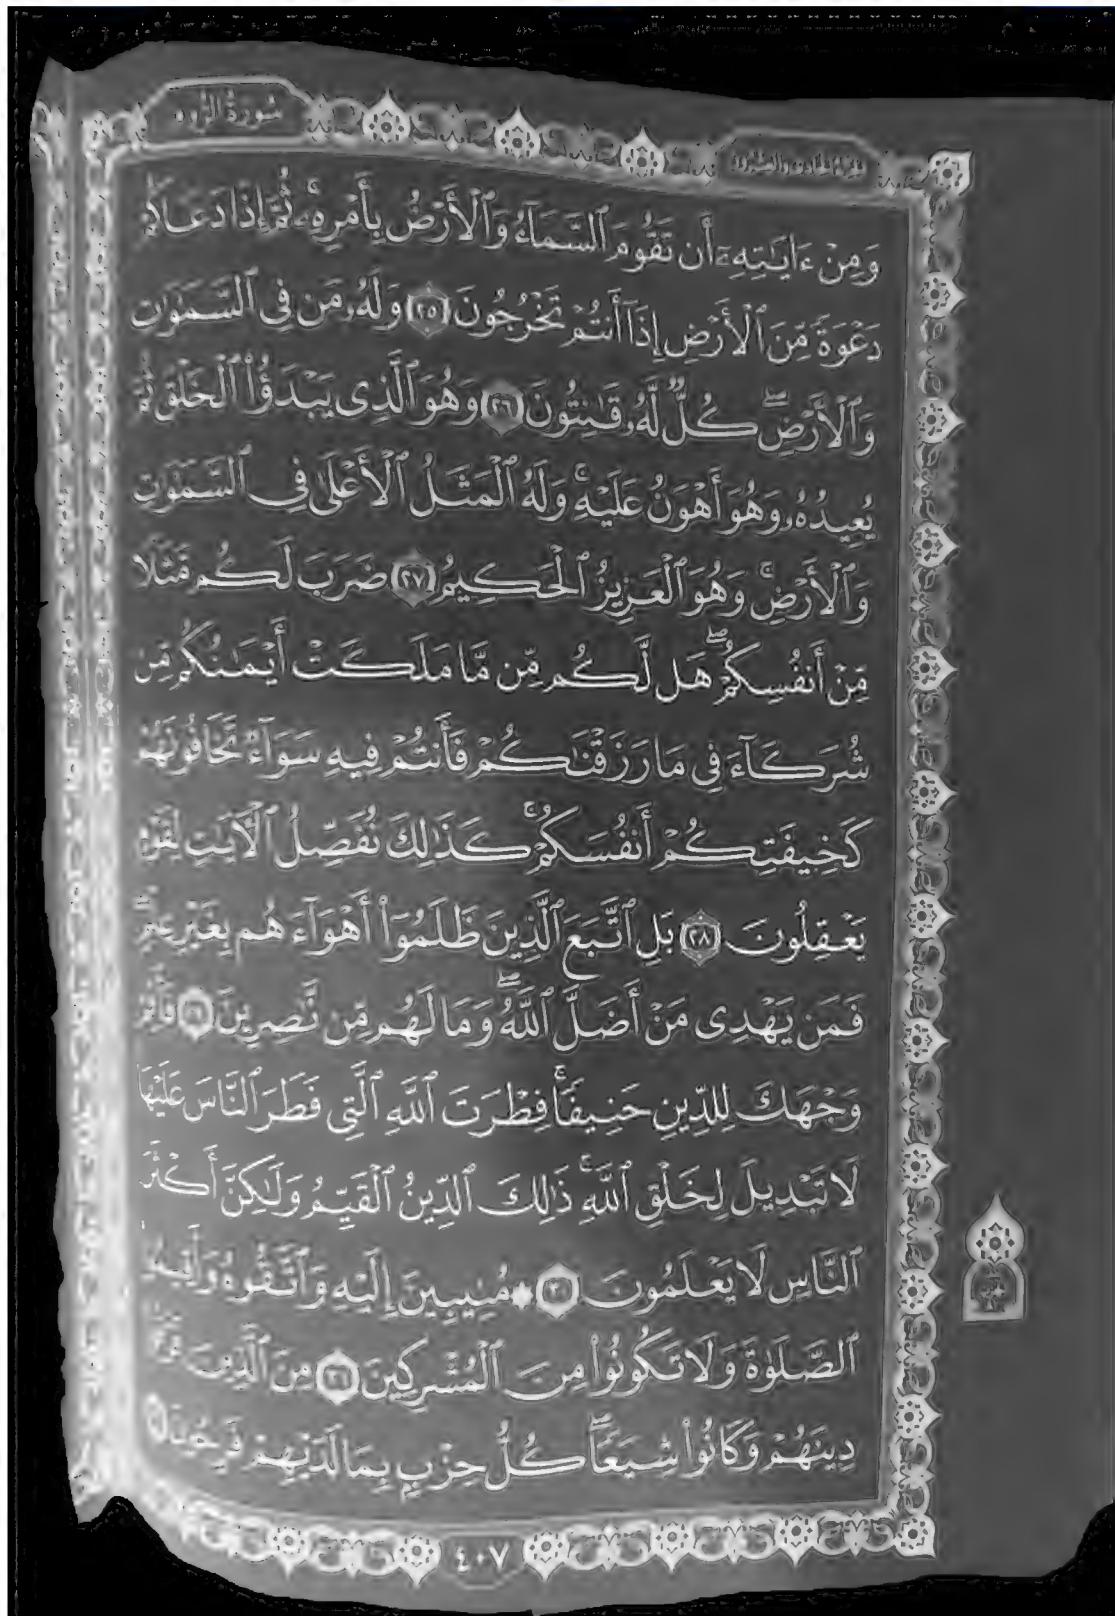 سُورَةُ الرُّومِ
الجُزْءُ الحَادِي وَالعِشْرُونَ
وَمِنْ ءَايَٰتِهِۦٓ أَن تَقُومَ ٱلسَّمَآءُ وَٱلْأَرْضُ بِأَمْرِهِۦۚ ثُمَّ إِذَا دَعَاكُمْ
دَعْوَةً مِّنَ ٱلْأَرْضِ إِذَآ أَنتُمْ تَخْرُجُونَ ٢٥ وَلَهُۥ مَن فِى ٱلسَّمَٰوَٰتِ
وَٱلْأَرْضِۖ كُلٌّ لَّهُۥ قَٰنِتُونَ ٢٦ وَهُوَ ٱلَّذِى يَبْدَؤُا۟ ٱلْخَلْقَ ثُمَّ
يُعِيدُهُۥ وَهُوَ أَهْوَنُ عَلَيْهِۚ وَلَهُ ٱلْمَثَلُ ٱلْأَعْلَىٰ فِى ٱلسَّمَٰوَٰتِ
وَٱلْأَرْضِۚ وَهُوَ ٱلْعَزِيزُ ٱلْحَكِيمُ ٢٧ ضَرَبَ لَكُم مَّثَلًا
مِّنْ أَنفُسِكُمْۖ هَل لَّكُم مِّن مَّا مَلَكَتْ أَيْمَٰنُكُم مِّن
شُرَكَآءَ فِى مَا رَزَقْنَٰكُمْ فَأَنتُمْ فِيهِ سَوَآءٌ تَخَافُونَهُمْ
كَخِيفَتِكُمْ أَنفُسَكُمْۚ كَذَٰلِكَ نُفَصِّلُ ٱلْءَايَٰتِ لِقَوْمٍ
يَعْقِلُونَ ٢٨ بَلِ ٱتَّبَعَ ٱلَّذِينَ ظَلَمُوٓا۟ أَهْوَآءَهُم بِغَيْرِ عِلْمٍۖ
فَمَن يَهْدِى مَنْ أَضَلَّ ٱللَّهُۖ وَمَا لَهُم مِّن نَّٰصِرِينَ ٢٩ فَأَقِمْ
وَجْهَكَ لِلدِّينِ حَنِيفًاۚ فِطْرَتَ ٱللَّهِ ٱلَّتِى فَطَرَ ٱلنَّاسَ عَلَيْهَاۚ
لَا تَبْدِيلَ لِخَلْقِ ٱللَّهِۚ ذَٰلِكَ ٱلدِّينُ ٱلْقَيِّمُ وَلَٰكِنَّ أَكْثَرَ
ٱلنَّاسِ لَا يَعْلَمُونَ ٣٠ ۞مُنِيبِينَ إِلَيْهِ وَٱتَّقُوهُ وَأَقِيمُوا۟
ٱلصَّلَوٰةَ وَلَا تَكُونُوا۟ مِنَ ٱلْمُشْرِكِينَ ٣١ مِنَ ٱلَّذِينَ فَرَّقُوا۟
دِينَهُمْ وَكَانُوا۟ شِيَعًاۖ كُلُّ حِزْبٍۭ بِمَا لَدَيْهِمْ فَرِحُونَ ٣٢
٤٠٧